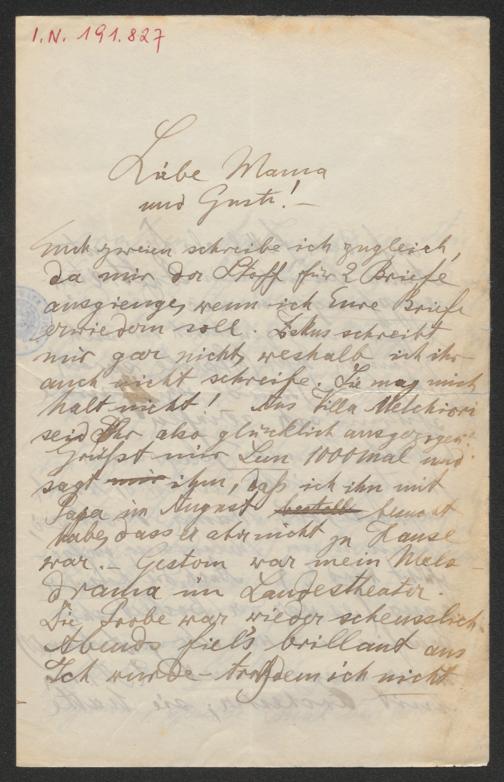 I.N. 191.827
Liebe Mama
und Gusti! –
Euch zweien schreibe ich zugleich,
da mir der Stoff für 2 Briefe
ausgienge, wenn ich Eure Briefe
erwiedern soll. schreibt
mir gar nicht, weshalb ich ihr
auch nicht schreibe. Sie mag mich
halt nicht! Aus Villa Melchiori
seid Ihr also glücklich ausgezogen!
Grüßt mir 1000mal und
sagt mir ihm, daß ich ihn mit
Papa im August bestellt besucht
habe, dass er aber nicht zu Hause
war. – Gestern war mein Melo-
drama im Landestheater.
Die Probe war wieder scheusslich
Abends fiel's brillant aus
Ich wurde – trotzdem ich nicht